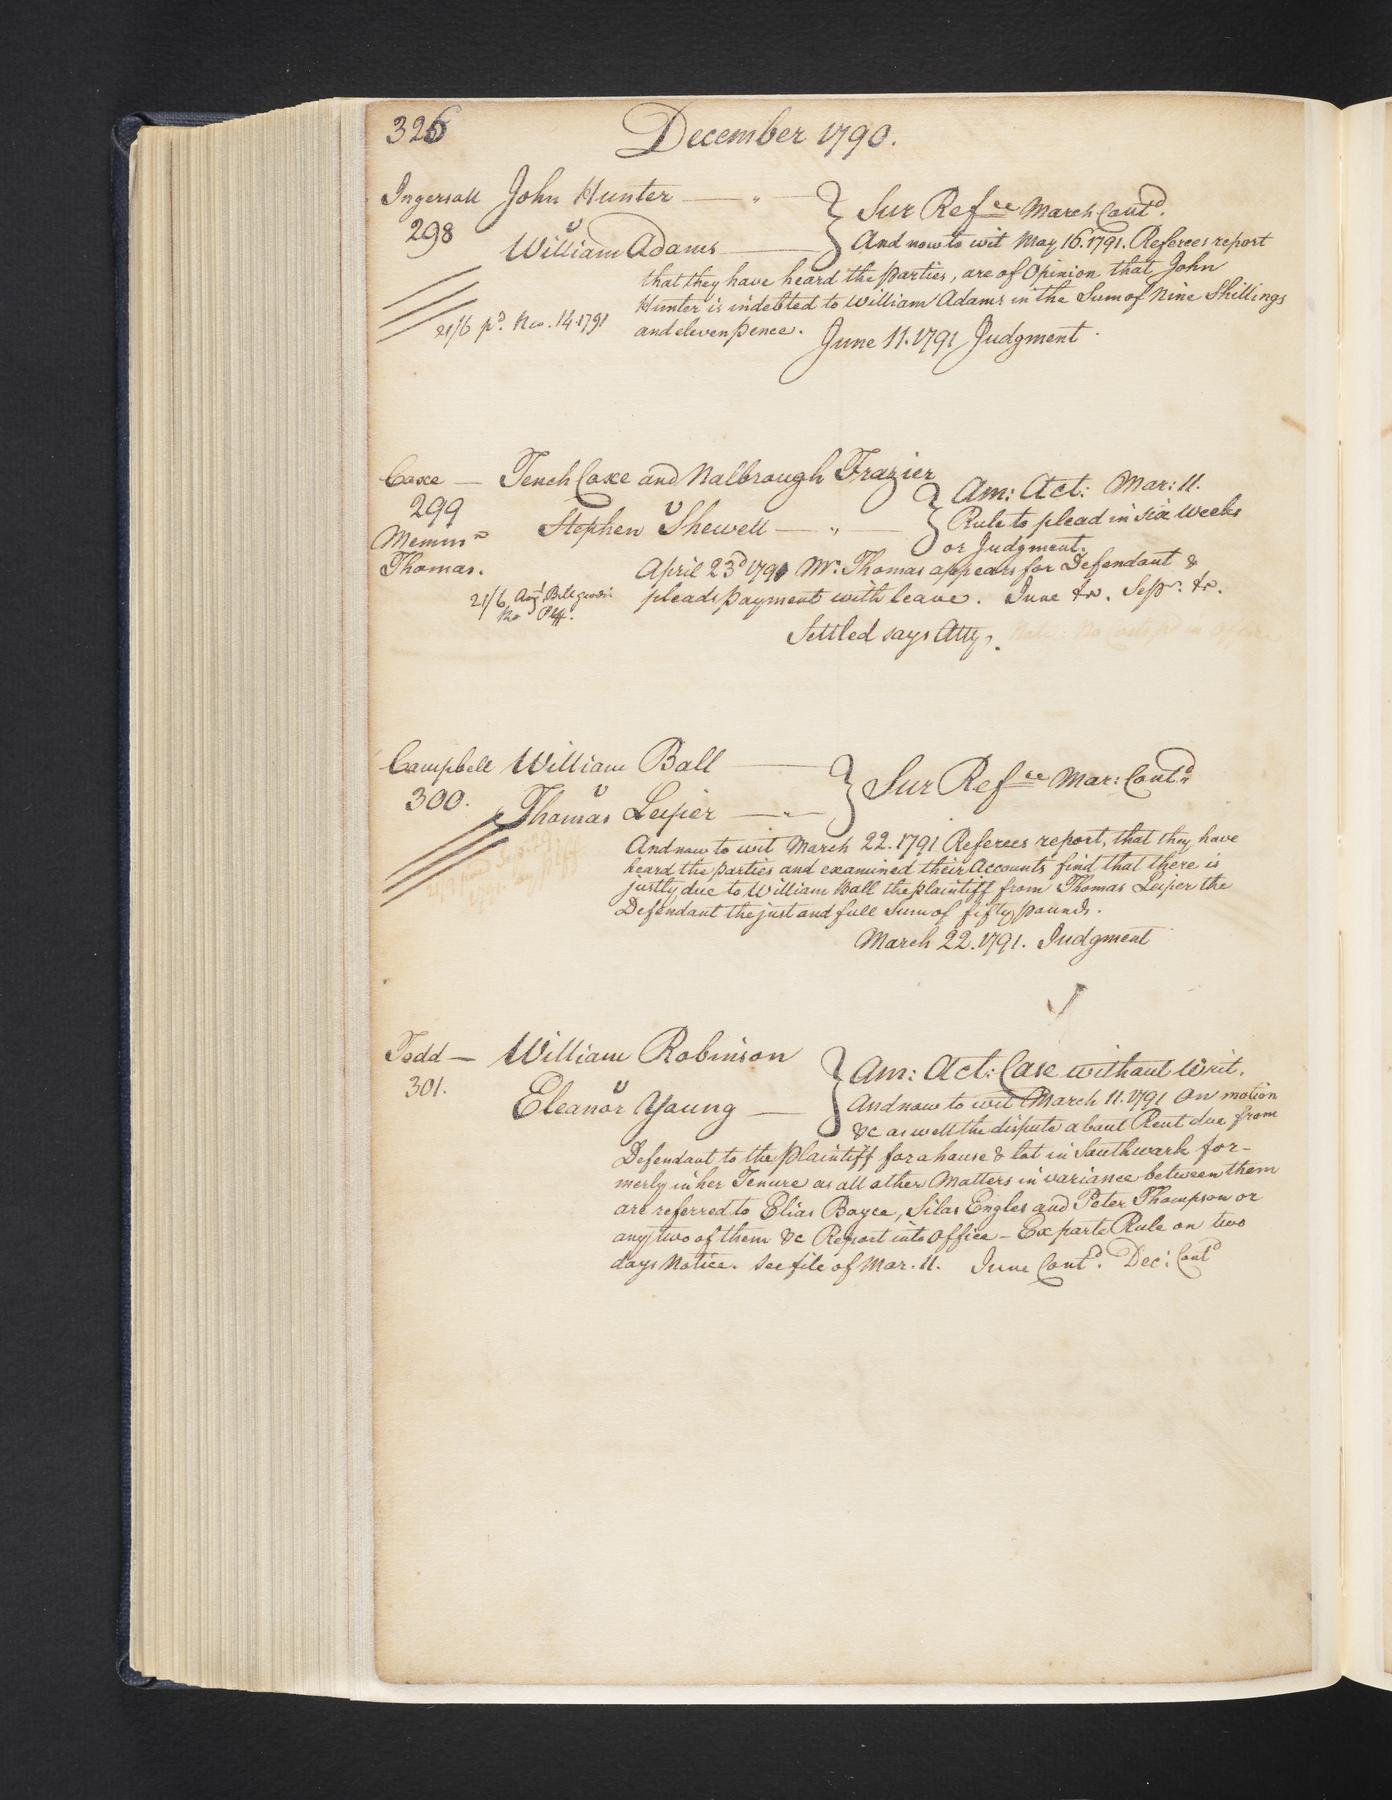 326 December 1790.
Ingersoll John Hunter — " — } Sur Refce March Contd.
298 v And now to wit May 16. 1791. Referees report
William Adams —
that they have heard the parties, are of Opinion that John
Hunter is indebted to William Adams in the Sum of Nine Shillings
21/6 pd. Nov. 14. 1791 and eleven pence. June 11. 1791 Judgment
Coxe — Tench Coxe and Nalbrough Frazier
299 v } Am: Act: Mar: 11.
Stephen Shewell — " — Rule to plead in six Weeks
Memm or Judgment.
Thomas. April 23d 1791 Mr. Thomas appears for Defendant &
21/6 pleads payment with leave. June &c. Sepr. &c.
Plff.
Settled says Atty. Note: No Costs pd in Office
Campbell William Ball — } Sur Refce Mar: Contd
300. v
Thomas Leiper — " —
And now to wit March 22. 1791 Referees report, that they have
heard the parties and examined their Accounts find that there is
justly due to William Ball the plaintiff from Thomas Leiper the
Defendant the just and full Sum of fifty pounds.
March 22. 1791. Judgment
Todd — William Robinson } Am: Act: Case without Writ.
301. v And now to wit March 11. 1791 On motion
Eleanor Young — &c as well the dispute about Rent due from
Defendant to the Plaintiff for a house & lot in Southwark for-
merly in her Tenure as all other Matters in variance between them
are referred to Elias Boyce, Silas Engles and Peter Thompson or
any two of them &c Report into Office — Ex parte Rule on two
days Notice. See file of Mar. 11. June Contd. Dec: Contd